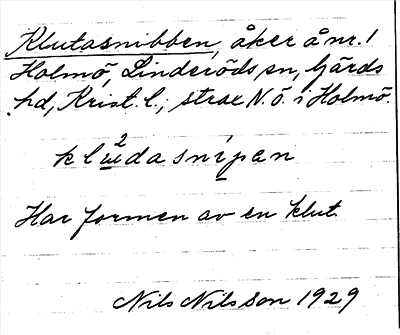 Klutasnibben, åker å nr. 1
Holmö, Linderöds sn, Gärds
hd, Krist. l., strax N. ö. i Holmö.
klu²dasnipan
Har formen av en klut.
Nils Nilsson 1929